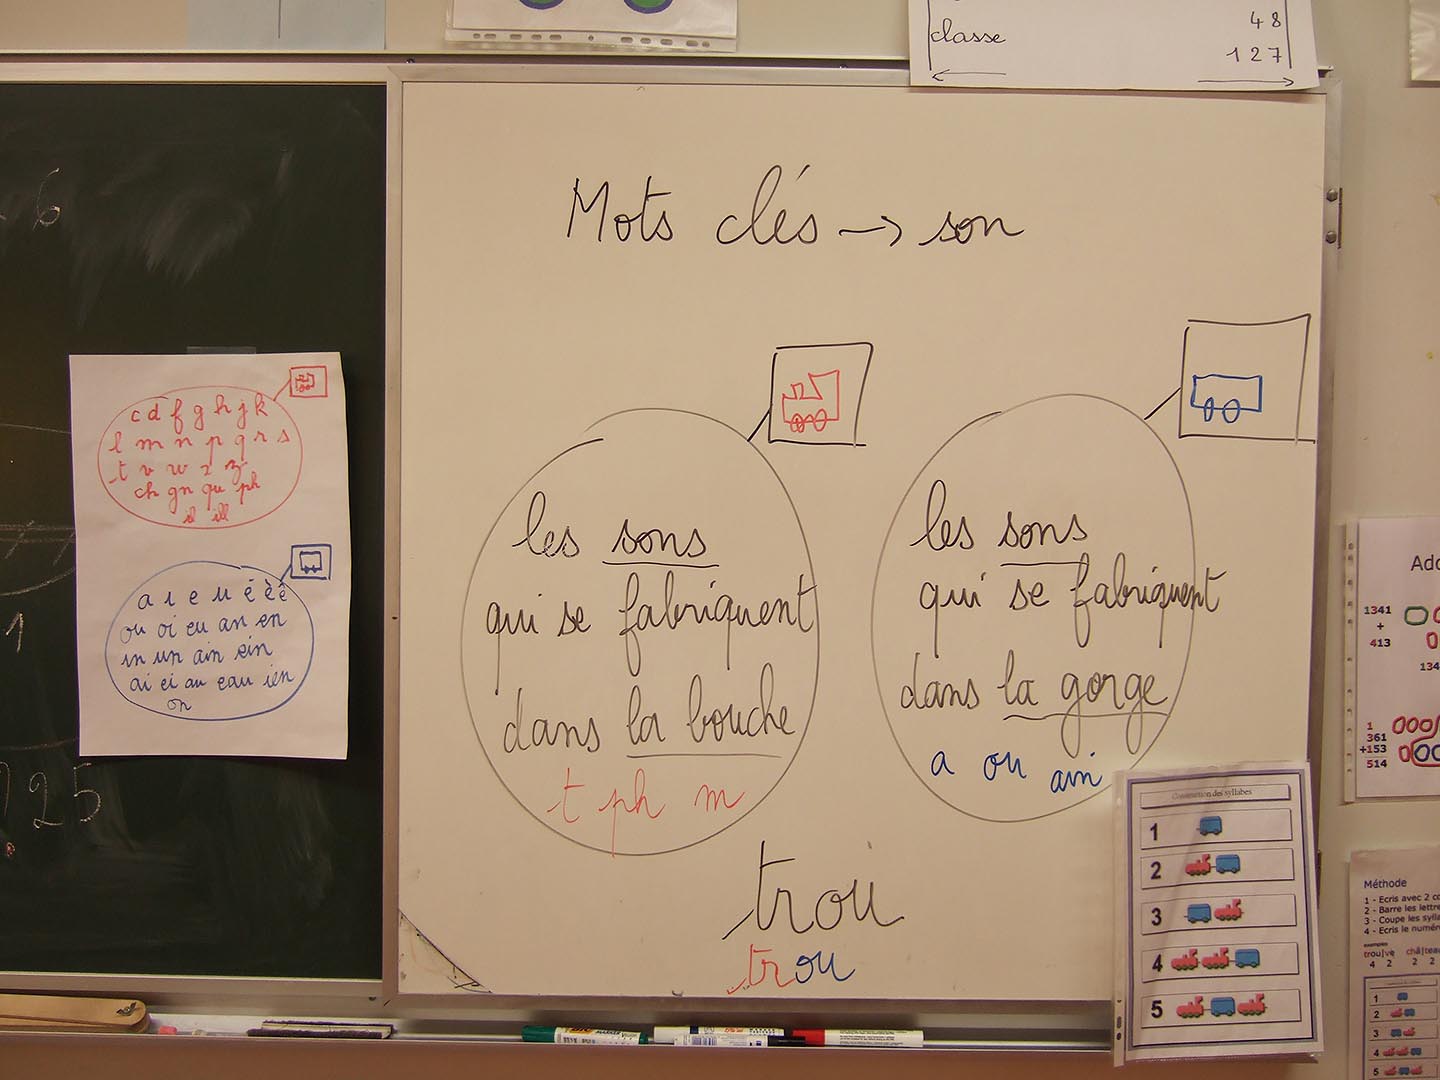 classe
48
127
6
1
725
c d f g h j k
l m n p q r s
t v w x z
ch gn qu ph
il ill
a i e u é è ê
ou oi eu an en
in un ain ein
ai ei au eau ien
on
Mots clés → son
les sons
qui se fabriquent
dans la bouche
t ph m
les sons
qui se fabriquent
dans la gorge
a ou ain
trou
trou
Construction des syllabes
1
2
3
4
5
1341
+
413
134
1
361
+153
514
Méthode
1 - Ecris avec 2 co
2 - Barre les lettre
3 - Coupe les sylla
4 - Ecris le numéro
trou|ve châ|teau
4 2 2 2
1
2
3
4
5